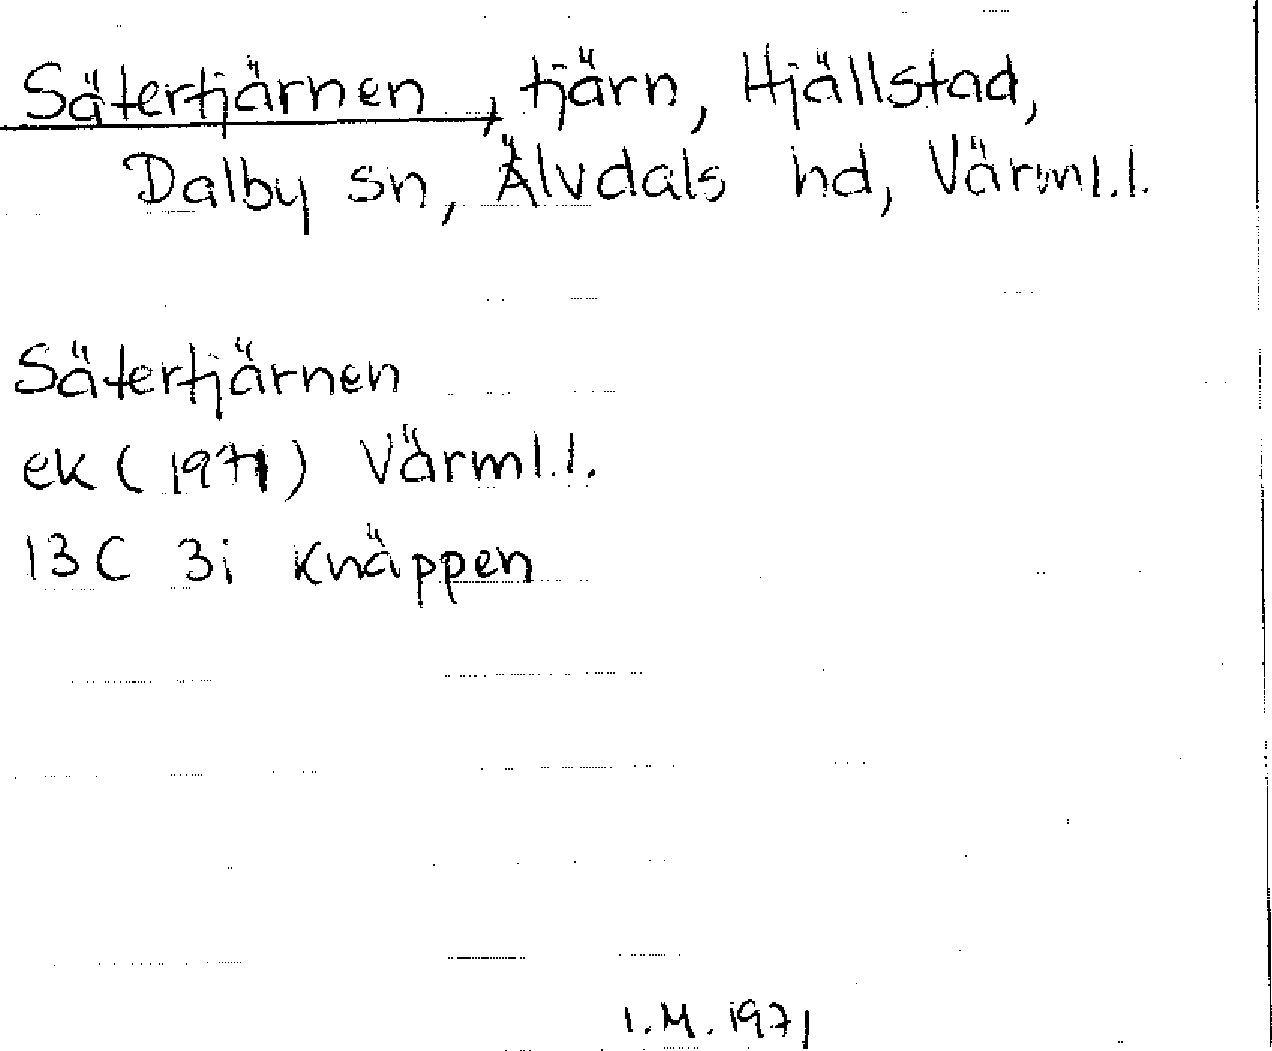 Sätertjärnen, tjärn, Hjällstad,
Dalby sn, Älvdals hd, Värml.l.
Sätertjärnen
ek (1971) Värml.l.
13C 3i Knäppen
I.M. 1971